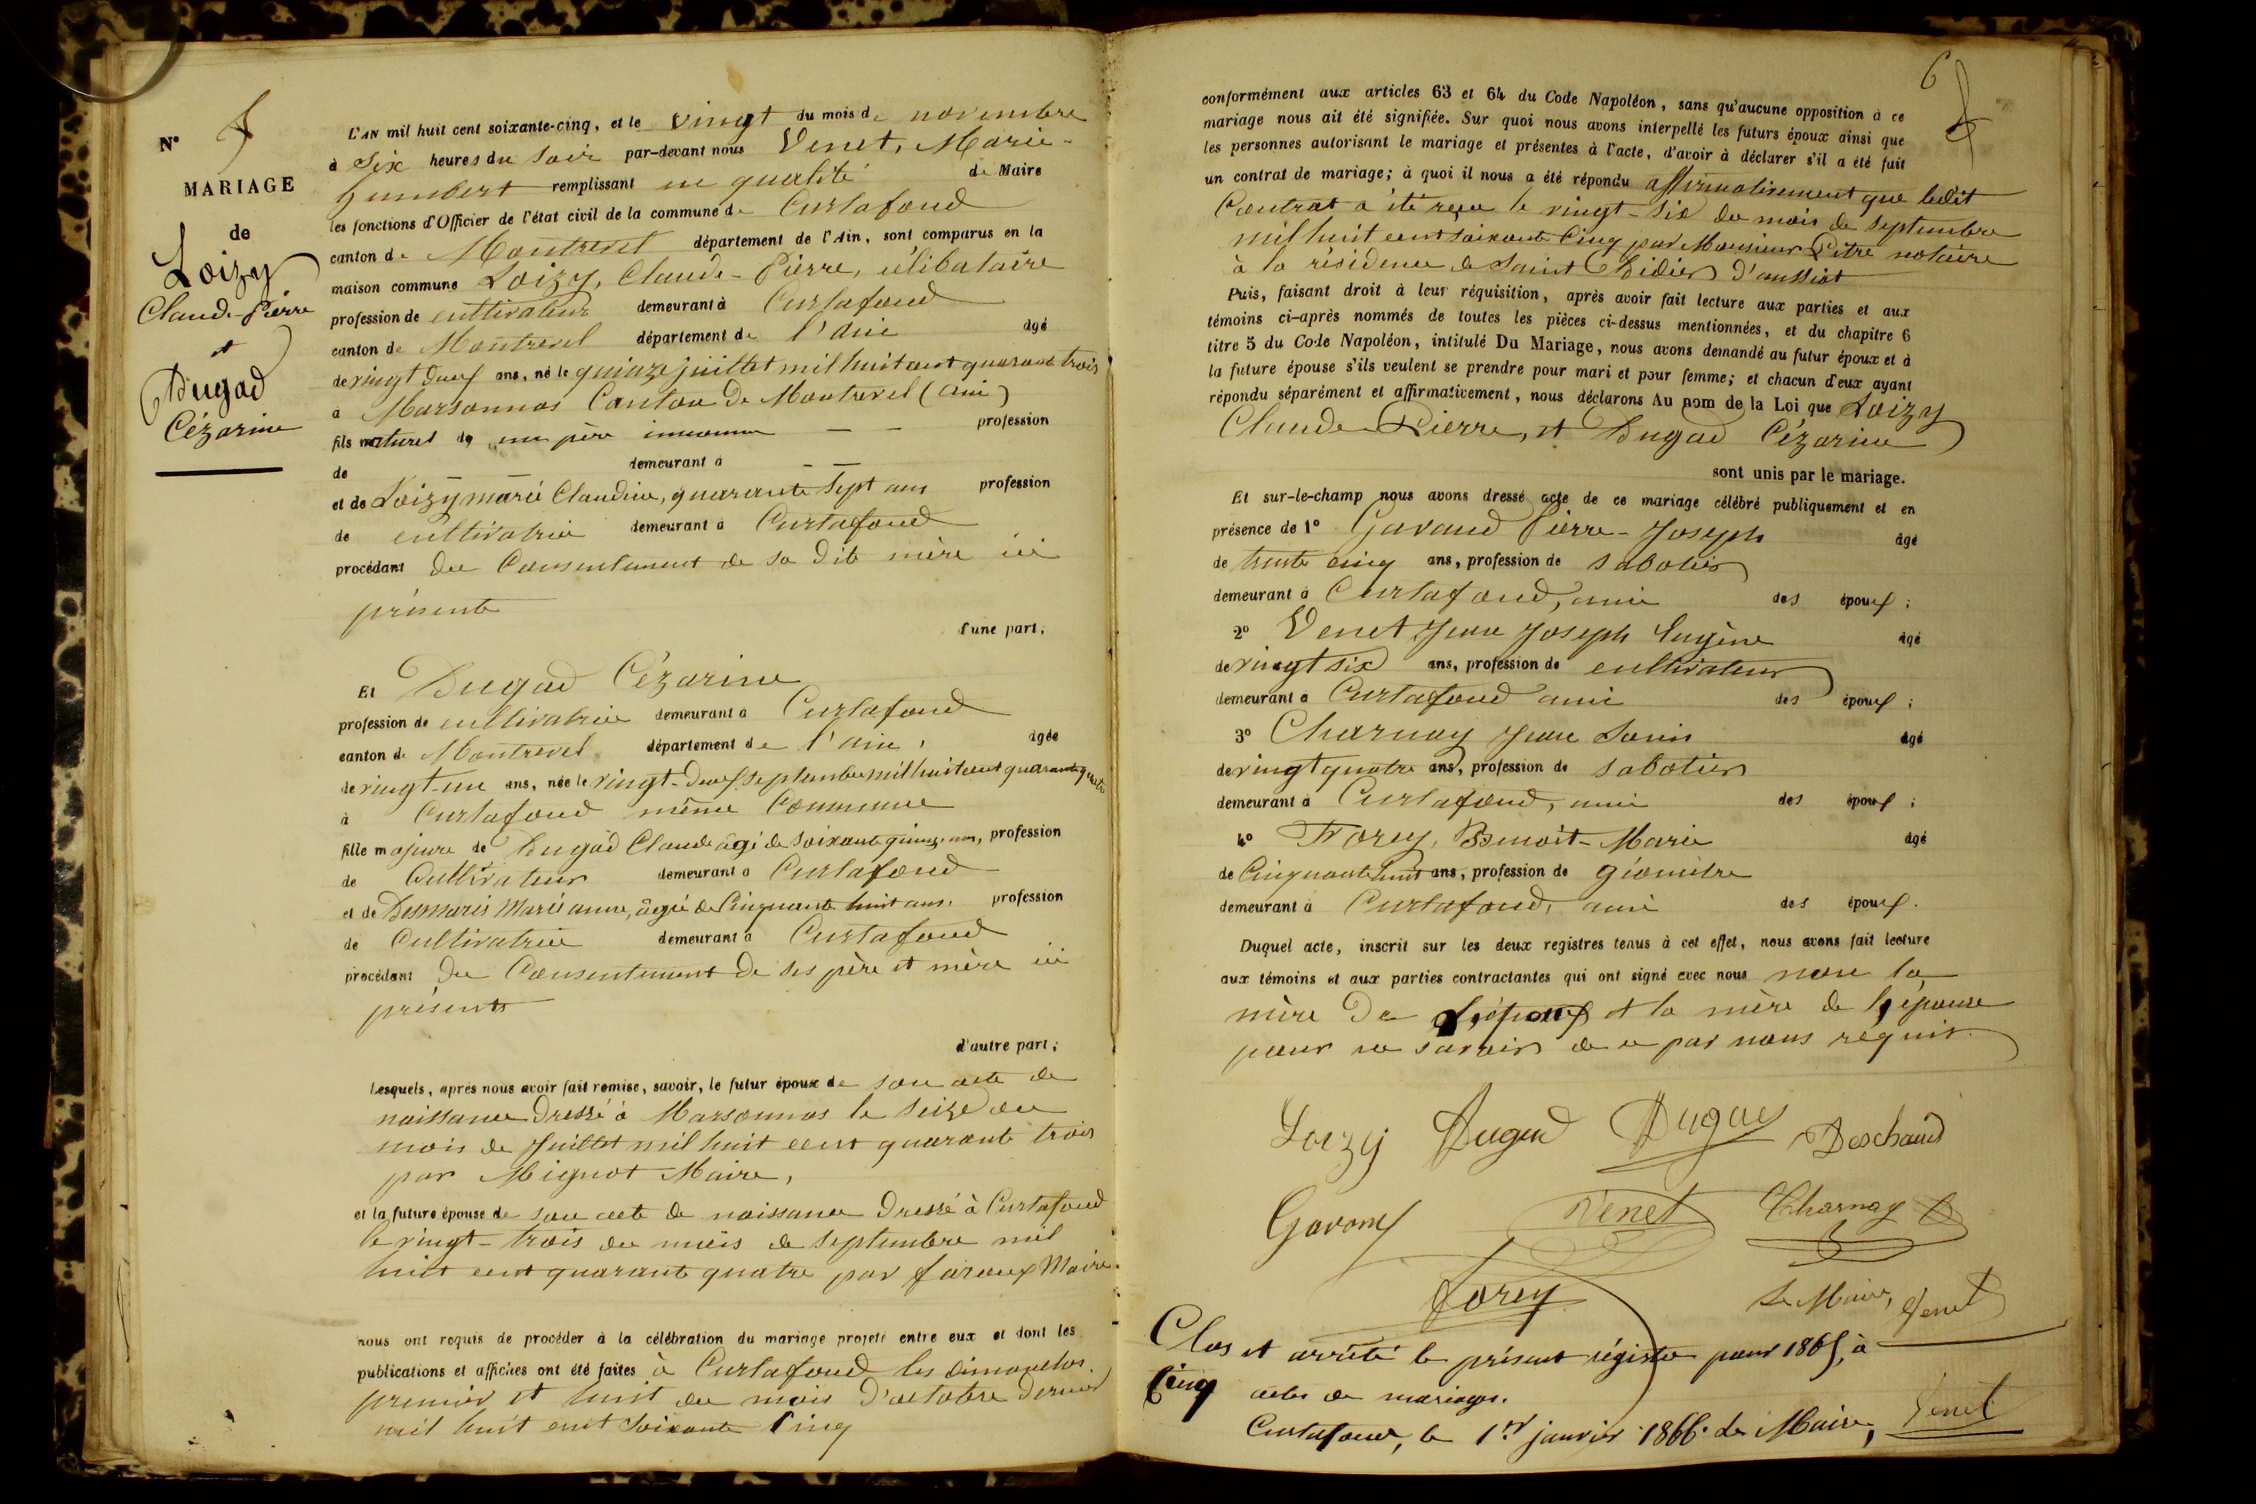 N° 5
MARIAGE
de
Loizy
Claude-Pierre
et
Dugad
Cézarine
L'AN mil huit cent soixante-cinq, et le vingt du mois de novembre
à Six heures du soir par-devant nous Venet, Marie-
humbert remplissant en qualité de Maire
les fonctions d'Officier de l'état civil de la commune de Curtafond
canton de Montrevel département de l'Ain, sont comparus en la
maison commune Loizy, Claude-Pierre, célibataire
profession de cultivateur demeurant à Curtafond
canton de Montrevel département de l'ain âgé
de vingt deux ans, né le quinze juillet mil huit cent quarante trois
à Marsonnas Canton de Montrevel (ain)
fils naturel de un père inconnu — — profession
de demeurant à — —
et de Loizy marie Claudine, quarante sept ans profession
de cultivatrice demeurant à Curtafond
procédant du Consentement de sa dite mère ici
présente
d'une part;
Et Dugad Cézarine
profession de cultivatrice demeurant à Curtafond
canton de Montrevel département de l'ain, âgée
de vingt-un ans, née le vingt-deux septembre mil huit cent quarante quatre
à Curtafond même Commune
fille majeure de Dugad Claude âgé de soixante quinze ans, profession
de Cultivateur demeurant à Curtafond
et de Desmaris Marie anne, âgée de Cinquante huit ans, profession
de Cultivatrice demeurant à Curtafond
procédant du Consentement de ses père et mère ici
présents
d'autre part;
Lesquels, après nous avoir fait remise, savoir, le futur époux de son acte de
naissance Dressé à Marsonnas le Seize du
mois de Juillet mil huit cent quarante trois
par Mignot Maire,
et la future épouse de son acte de naissance Dressé à Curtafond
le vingt-trois du mois de septembre mil
huit cent quarante quatre par Maire.
nous ont requis de procéder à la célébration du mariage projeté entre eux et dont les
publications et affiches ont été faites à Curtafond les dimanches
premier et huit du mois d'octobre dernier
mil huit cent soixante Cinq
6
conformément aux articles 63 et 64 du Code Napoléon, sans qu'aucune opposition à ce
mariage nous ait été signifiée. Sur quoi nous avons interpellé les futurs époux ainsi que
les personnes autorisant le mariage et présentes à l'acte, d'avoir à déclarer s'il a été fait
un contrat de mariage; à quoi il nous a été répondu affirmativement que ledit
Contrat a été reçu le vingt-six du mois de septembre
mil huit cent soixante Cinq par Monsieur Pitre notaire
à la résidence de Saint Didier d'aussiat
Puis, faisant droit à leur réquisition, après avoir fait lecture aux parties et aux
témoins ci-après nommés de toutes les pièces ci-dessus mentionnées, et du chapitre 6
titre 5 du Code Napoléon, intitulé Du Mariage, nous avons demandé au futur époux et à
la future épouse s'ils veulent se prendre pour mari et pour femme; et chacun d'eux ayant
répondu séparément et affirmativement, nous déclarons Au nom de la Loi que Loizy
Claude-Pierre, et Dugad Cézarine
sont unis par le mariage.
Et sur-le-champ nous avons dressé acte de ce mariage célébré publiquement et en
présence de 1° Gavand Pierre-Joseph âgé
de trente cinq ans, profession de sabotier
demeurant à Curtafond, ami des époux;
2° Venet Jean Joseph Eugène âgé
de vingt six ans, profession de cultivateur
demeurant à Curtafond ami des époux;
3° Charnay Jean Savin âgé
de vingt quatre ans, profession de sabotier
demeurant à Curtafond, ami des époux;
4° Forey, Benoit-Marie âgé
de Cinquante huit ans, profession de géomètre
demeurant à Curtafond, ami des époux.
Duquel acte, inscrit sur les deux registres tenus à cet effet, nous avons fait lecture
aux témoins et aux parties contractantes qui ont signé avec nous non la
mère de l'époux et la mère de l'épouse
pour ne savoir de ce par nous requis.
Loizy Dugad Dugad Deschand
Gavand Venet Charnay
Forey Le Maire, Venet
Clos et arrêté le présent régistre pour 1865, à
Cinq actes de mariages.
Curtafond, le 1er janvier 1866. Le Maire, Venet